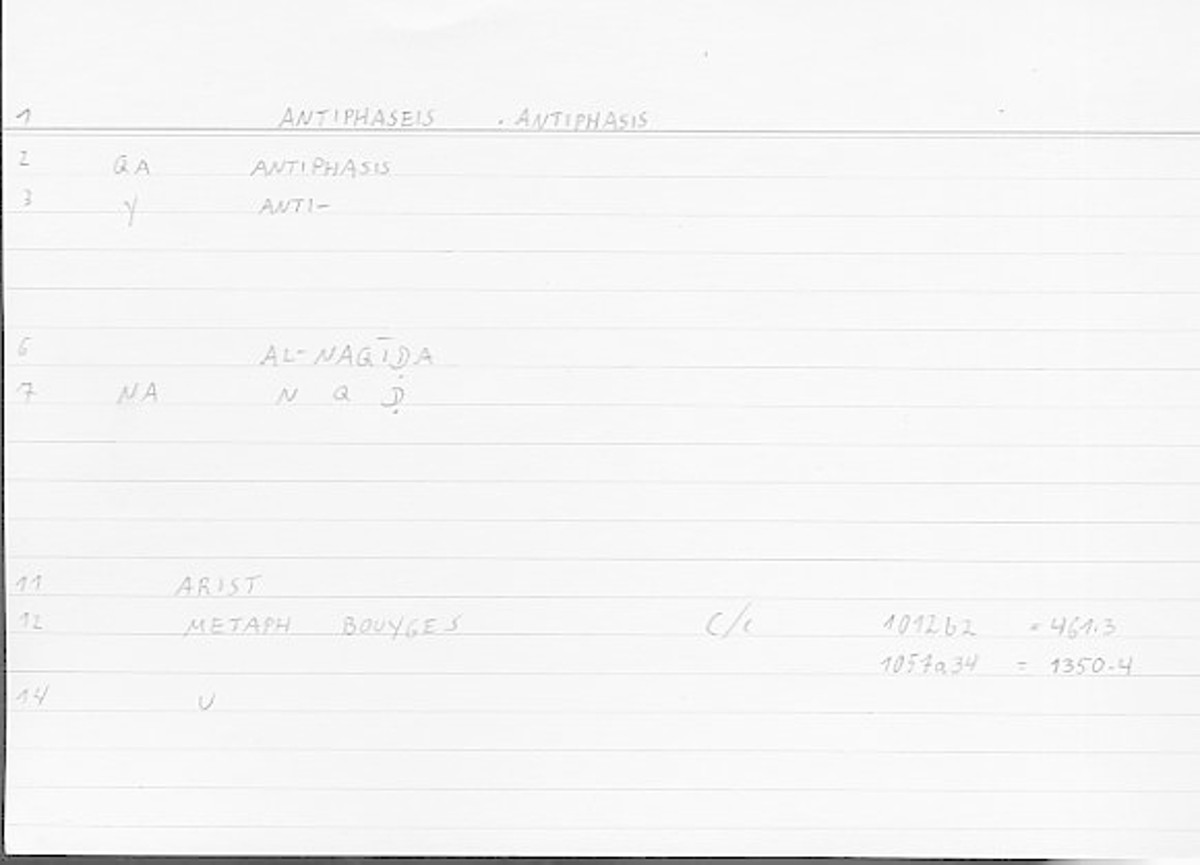 1 ANTIPHASEIS . ANTIPHASIS
2 QA ANTIPHASIS
3 Y ANTI-
6 AL-NAQĪḌA
7 NA N Q Ḍ
11 ARIST
12 METAPH BOUYGES C/c 1012b2 = 461.3
1057a34 = 1350.4
14 U